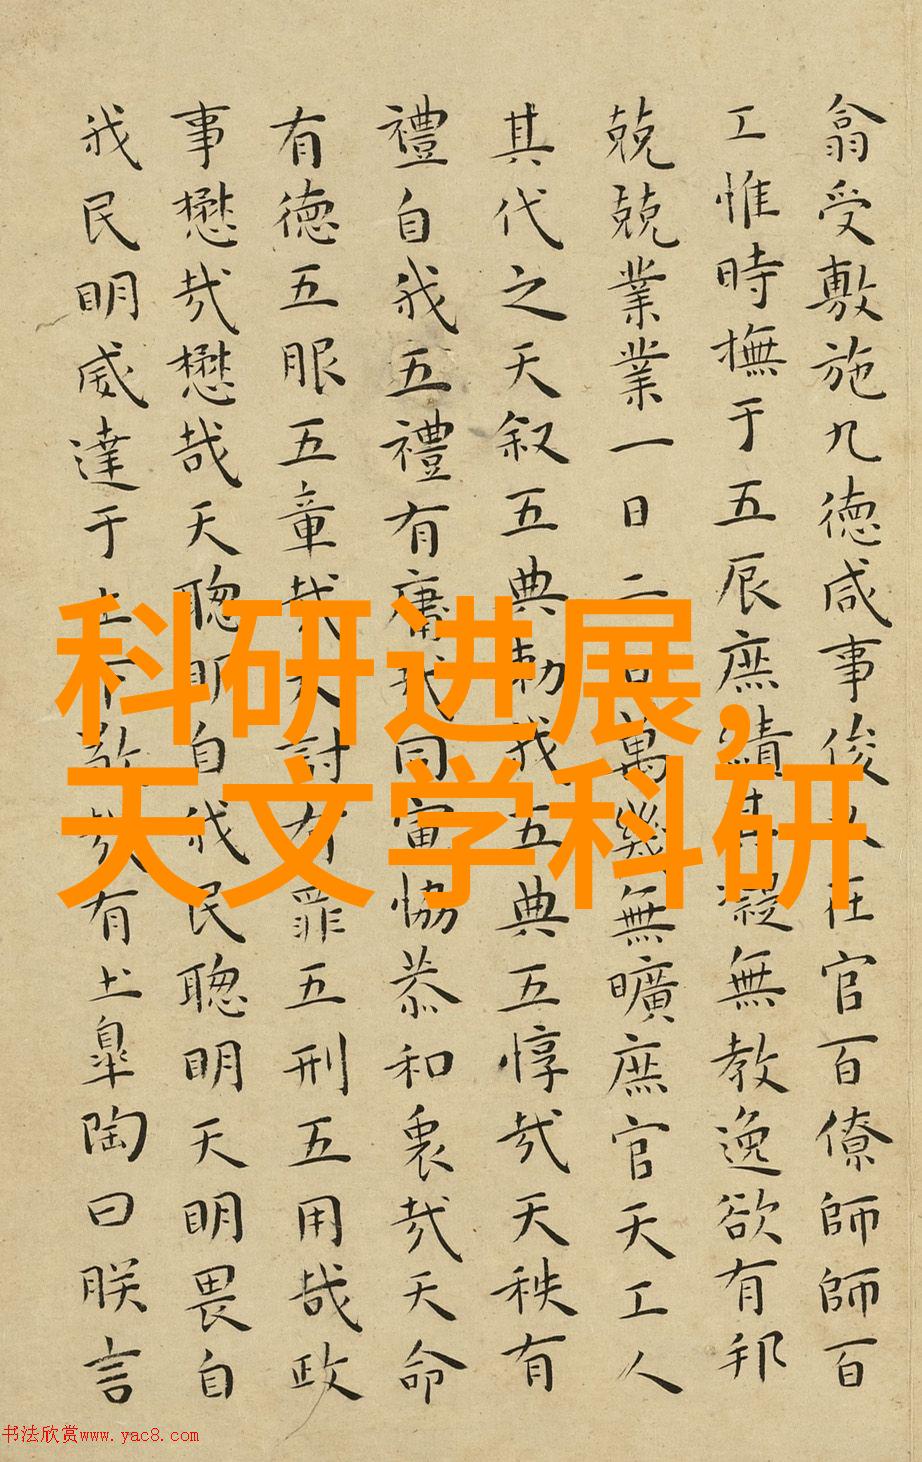 翕受敷施九德咸事俊乂在官百僚師師百
工惟時撫于五辰庶績其凝無教逸欲有邦
兢兢業業一日二日萬幾無曠庶官天工人
其代之天叙五典勅我五典五惇哉天秩有
禮自我五禮有庸哉同寅恊恭和衷哉天命
有德五服五章哉天討有罪五刑五用哉政
事懋哉懋哉天聰明自我民聰明天明畏自
我民明威達于上下敬哉有土皐陶曰朕言
科研进展,
天文学科研
书法欣赏www.yac8.com